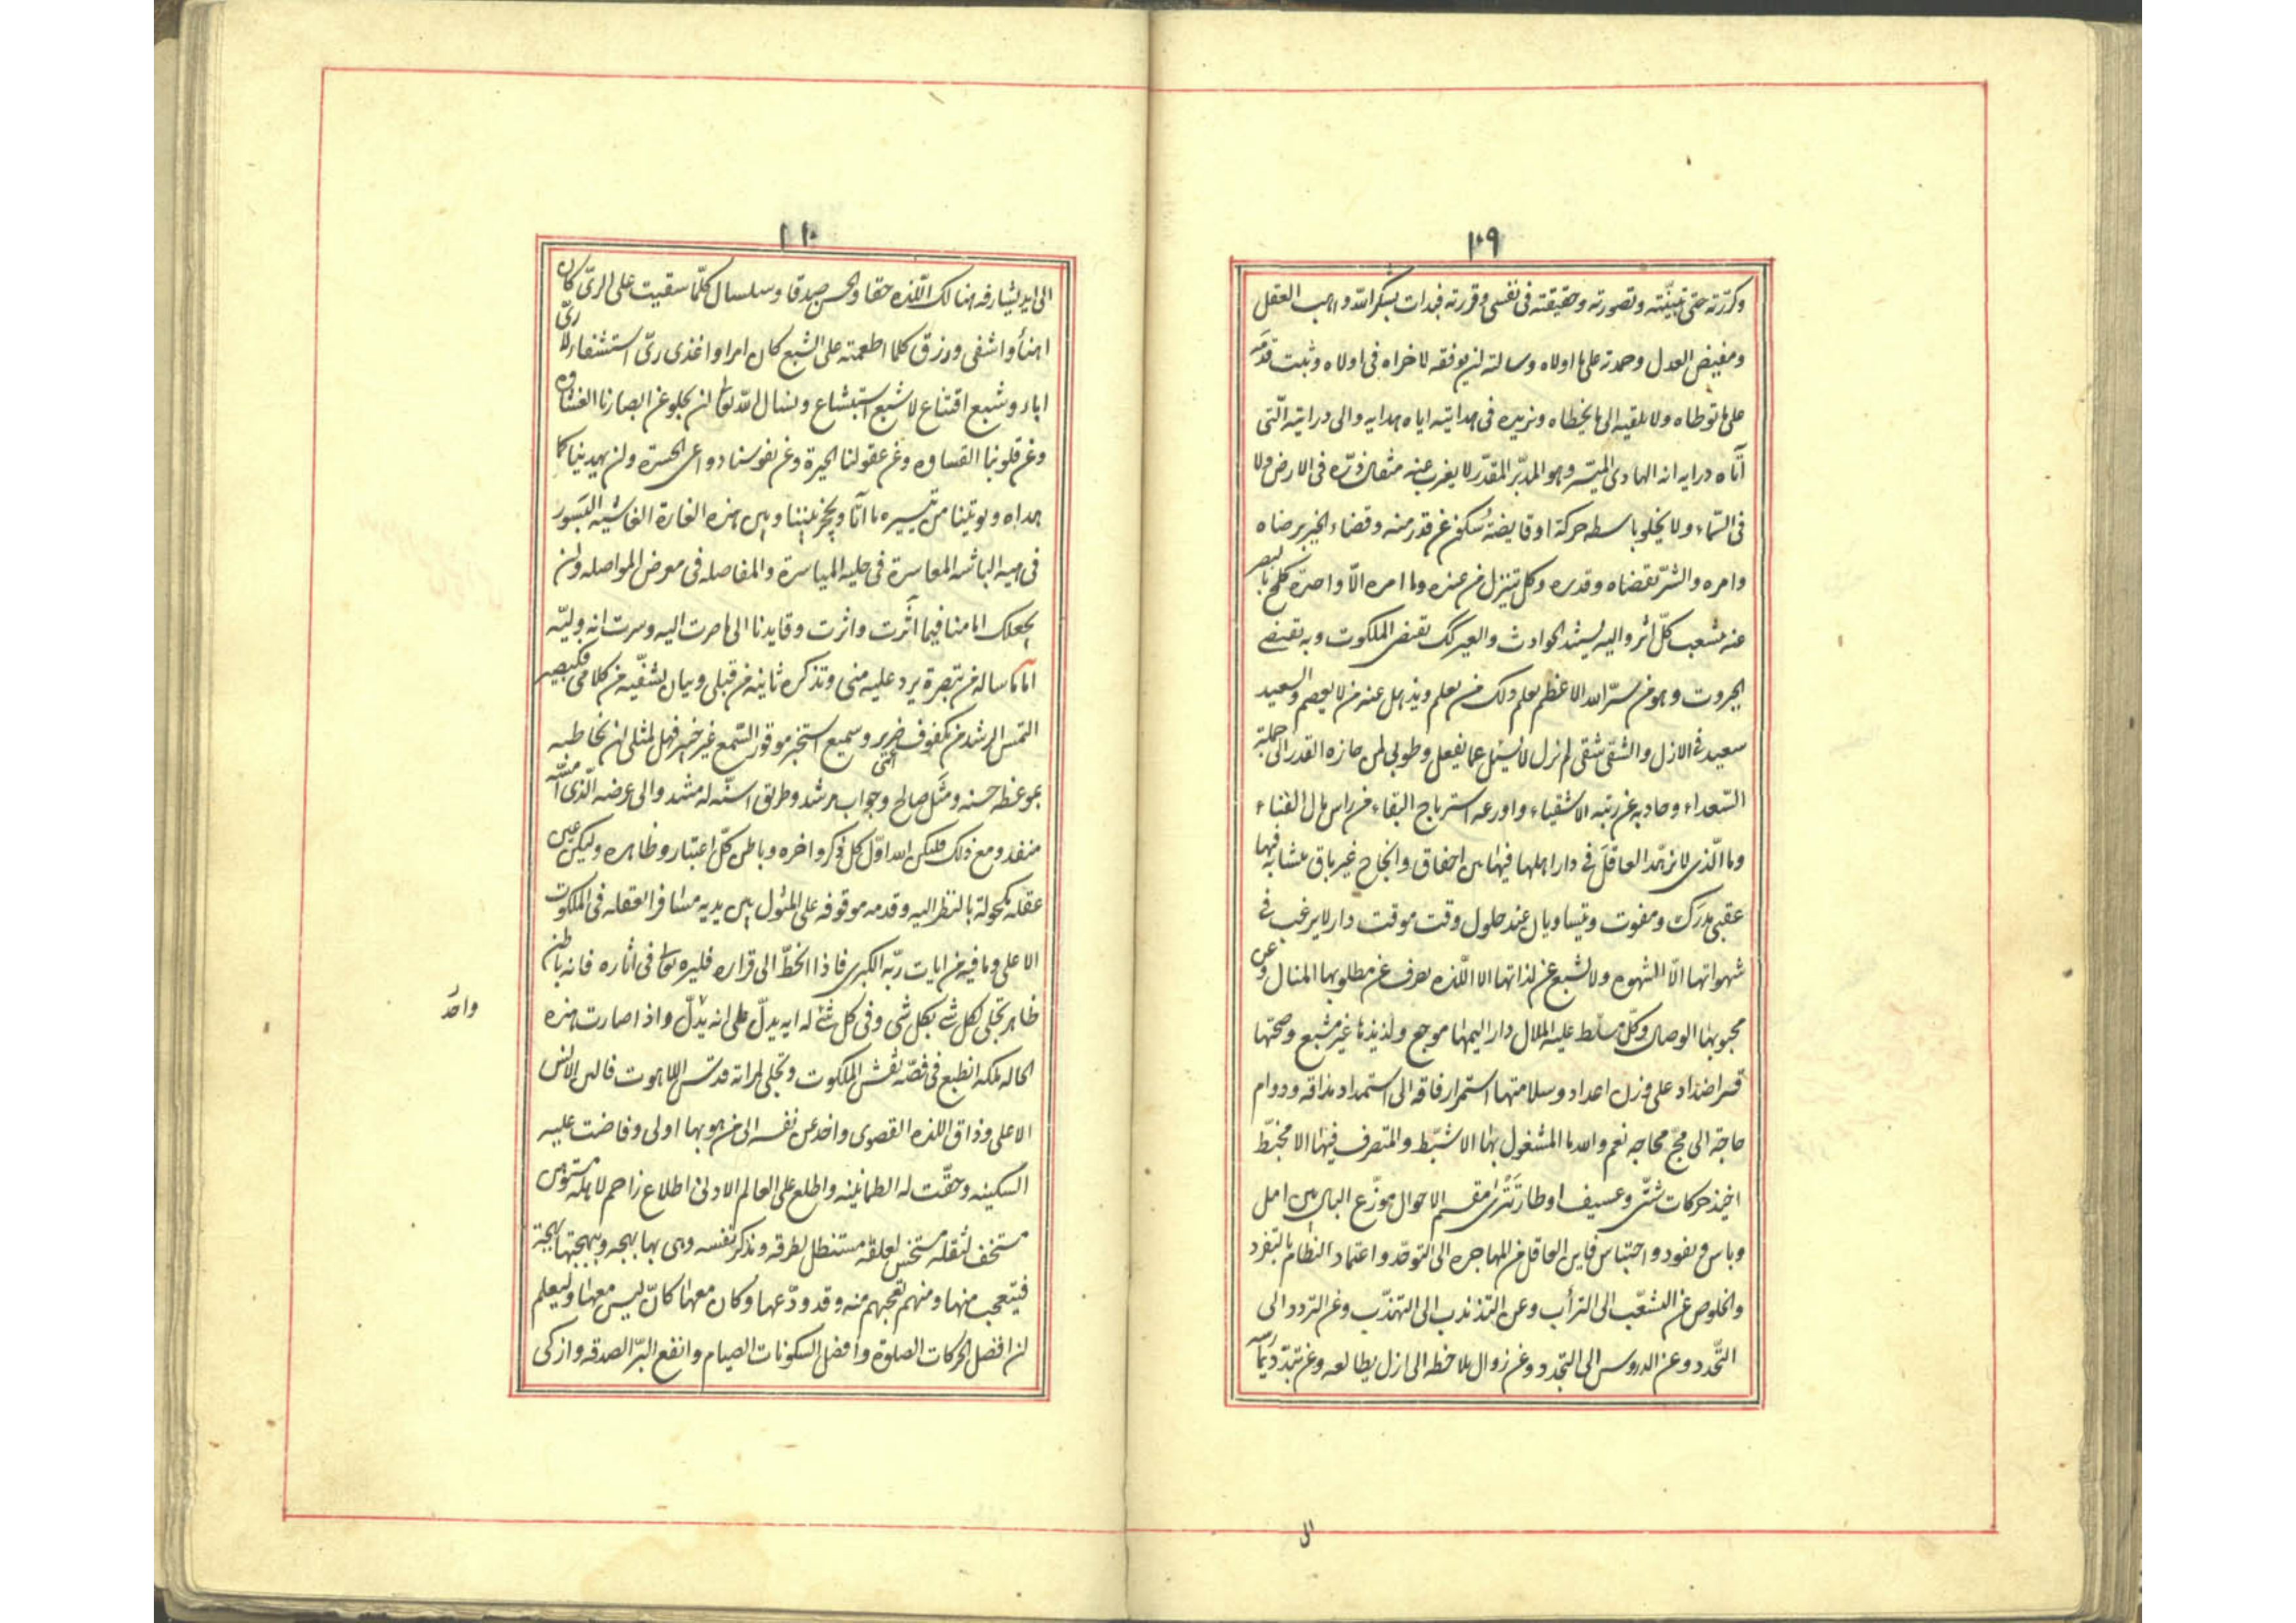 ۱۰۹
وکررته حتی تبینته وتصورته وحقیقته فی نفسی وقررته فبدات بشکر الله واهب العقل
ومفیض العدل وحمدته علی ما اولاه وسالته ان یوفقه لاخراه فی اولاه وثبت قدمه
علی ما توطاه ولا یلقیه الی ما یخطاه ویزیده فی هدایته ایاه هدایه والی درایته الّتی
آتاه درایه انه الهادی المیسر وهو المدبّر المقدّر لا یعزب عنه مثقال ذرّه فی الارض ولا
فی السّماء ولا یخلو باسطه حرکة او قابضة سکون عن قدر منه وقضاء الخیر برضاه
وامره والشرّ بقضاه وقدره وکل یتنزل من عنده وما امره الّا واحدة کلمح بالبصر
عنه منشعب کلّ اثر والیه یستند الحوادث والغیر کک تقضی الملکوت وبه تقضی
الجبروت وهو من سرّ الله الاعظم یعلم ذلک من یعلم ویذهل عنه من لا یعصم والسعید
سعید فی الازل والشقی شقی لم یزل لا یسئل عما یفعل وطوبی لمن حازه القدر الی جملة
السّعداء وحاد به عن رتبه الاشقیاء واوزعه استرباح البقاء من راس مال الفناء
وما الّذی لا یزهد العاقل فی دار اهلها فیها بین اخفاق وانجاح غیر باق متشابه فیها
عقبی مدرک ومفوت ویتساویان عند حلول وقت موقت دار لا یرغب فی
شهواتها الّا الشهوه ولا تشبع عن لذاتها الا اللّذه یصرف عن مطلوبها المنال وعن
محبوبها الوصال وکلّ مسلط علیه الملال دار الیمها موجع ولذیذها غیر مشبع وصحّتها
قسر اضداد علی وزن اعداد وسلامتها استمرار فاقه الی استمداد مذاقه ودوام
حاجة الی مجّ مجاجه نعم والله ما المشغول بها الا مثبّط والمتصرف فیها الا مخبّط
اخیذ حرکات شتّی وعسیف اوطار تتری مقسم الاحوال موزّع البال بین امل
ویاس ونفود واحتباس فاین العاقل من المهاجره الی التوحّد واعتماد النظام بالتفرد
والخلوص عن التشعّب الی الترأب وعن التذبذب الی التهذّب وعن التردد الی
التّحدد وعن الدروس الی التجدد وعن زوال یلاحظه الی ازل یطالعه وعن تبدّد
ال
۱۱۰
الی ابد یشارفه هنالک اللّذه حقا والحسن صدقا وسلسال کلّما سقیت علی الریّ کان
اهنأ واشفی ورزق کلما اطعمته علی الشبع کان امرا واغذی ریّ استشفاء لا ریّ
اباء وشبع اقتناع لا شبع استبشاع ونسال الله تعالی ان یجلو عن ابصارنا الغشاوه
وعن قلوبنا القساوه وعن عقولنا الحیرة وعن نفوسنا دواعی الحسرة وان یهدینا کما
هداه ویوتینا من تیسیره ما آتا ویحجز بیننا وبین هذه الغارة الغاشیه البسور
فی هیه الباشه المعاسرة فی حلیه المیاسرة والمفاصله فی معرض المواصله وان
یجعلک امامنا فیما آثرت واثرت وقایدنا الی ما صرت الیه وسرت انه ولیّه
اما ما ساله من تبصرة یرد علیه منی وتذکره ثانیه من قبلی وبیان یشفیه من کلامی فکبصیر
التمس الرشد من مکفوف ضریر وسمیع استخبر موقور السّمع غیر خبیر فهل لمثلی ان یخاطبه
بموعظة حسنه ومثل صالح وجواب مرشد وطریق اسنه له منشد والی غرضه الّذی امّه
منفذ ومع ذلک فلیکن الله اوّل کل فکر واخره وباطن کلّ اعتبار وظاهره ولیکن عین
عقله مکحولة بالنظر الیه وقدمه موقوفه علی المثول بین یدیه مسافرا بعقله فی الملکوت
الاعلی وما فیه من ایات ربّه الکبری فاذا انحطّ الی قراره فلیره تعالی فی اثاره فانه باطن
ظاهر تجلی لکل شی بکل شی وفی کل شی له ایه یدلّ علی انه یدلّ واذا صارت هذه
واحد
الحاله ملکة انطبع فی فصّه نقش الملکوت وتجلی لمراته قدس اللاهوت فالف الانس
الاعلی وذاق اللذه القصوی واخذ عن نفسه الی من هو بها اولی وفاضت علیه
السکینه وحقّت له الطمانینه واطلع علی العالم الادنی اطلاع راحم لاهله مستوهن
مستخف لثقله مستخس لعلقه مستنطل لطرقه ویذکر نفسه وهی بها بهجه وبهجتها بهجة
فیتعجب منها ومنهم تعجبهم منه وقد ودّعها وکان معها کان لیس معها ولیعلم
ان افضل الحرکات الصلوة وافضل السکونات الصیام وانفع البرّ الصدقه وازکی